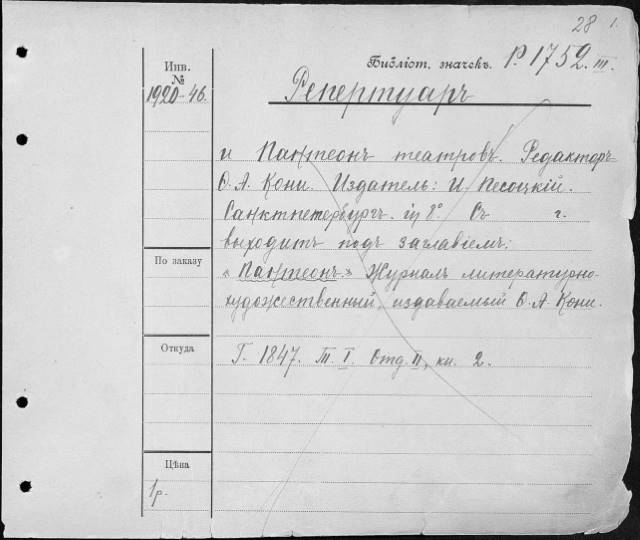 28 1.
Библіот. значекъ. Р. 1752. III.
Инв.
№
1920-46.
Репертуаръ
и Пантеонъ театровъ. Редакторъ
Ѳ. А. Кони. Издатель: И. Песоцкій.
Санктпетербургъ. in 8°. Съ г.
выходитъ подъ заглавіемъ:
По заказу
« Пантеонъ.» Журналъ литературно-
художественный, издаваемый Ѳ. А. Кони.
Откуда
Г. 1847. Т. I. Отд. II, кн. 2.
Цѣна
1 р.